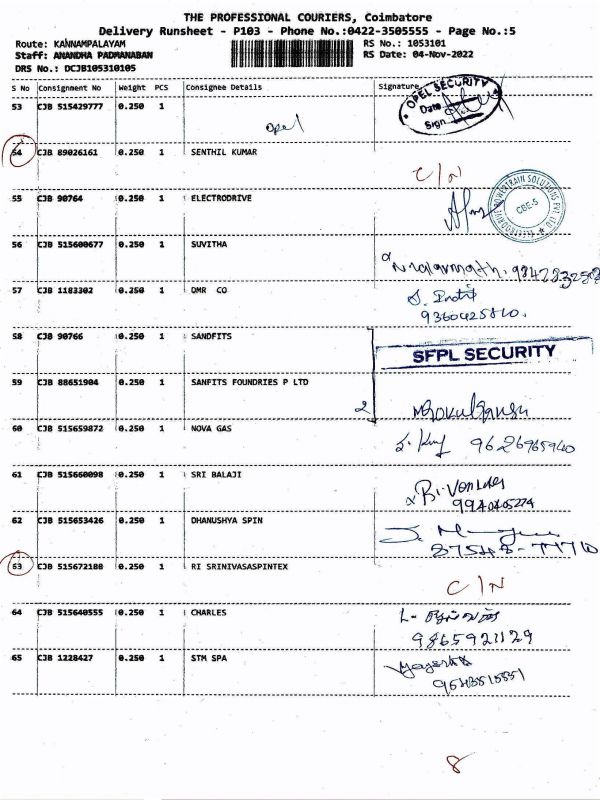 THE PROFESSIONAL COURIERS, Coimbatore
Delivery Runsheet - P103 - Phone No.:0422-3505555 - Page No.:5
Route: KANNAMPALAYAM RS No.: 1053101
Staff: ANANDHA PADMANABAN RS Date: 04-Nov-2022
DRS No.: DCJB105310105
S No Consignment No Weight PCS Consignee Details Signature
53 CJB 515429777 0.250 1 Opel
OPEL SECURITY
Date
Sign
54 CJB 89026161 0.250 1 SENTHIL KUMAR C/N
55 CJB 90764 0.250 1 ELECTRODRIVE
ELECTRODRIVE POWERTRAIN SOLUTIONS PVT LTD
CBE-5
56 CJB 515600677 0.250 1 SUVITHA
57 CJB 1183302 0.250 1 DMR CO
9360425810.
58 CJB 90766 0.250 1 SANDFITS
SFPL SECURITY
59 CJB 88651904 0.250 1 SANFITS FOUNDRIES P LTD 2
60 CJB 515659872 0.250 1 NOVA GAS 9626965940
61 CJB 515660098 0.250 1 SRI BALAJI
9940405274
62 CJB 515653426 0.250 1 DHANUSHYA SPIN
63 CJB 515672188 0.250 1 RI SRINIVASASPINTEX C/N
64 CJB 515640555 0.250 1 CHARLES
9865921129
65 CJB 1228427 0.250 1 STM SPA
8